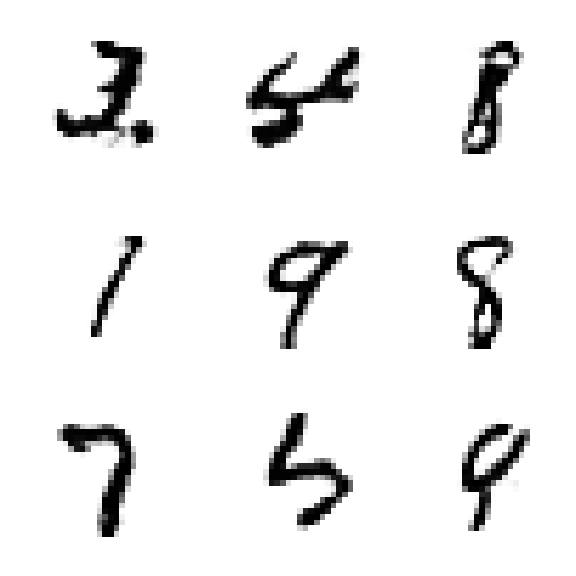 3. 5 8
1 9 8
7 5 9